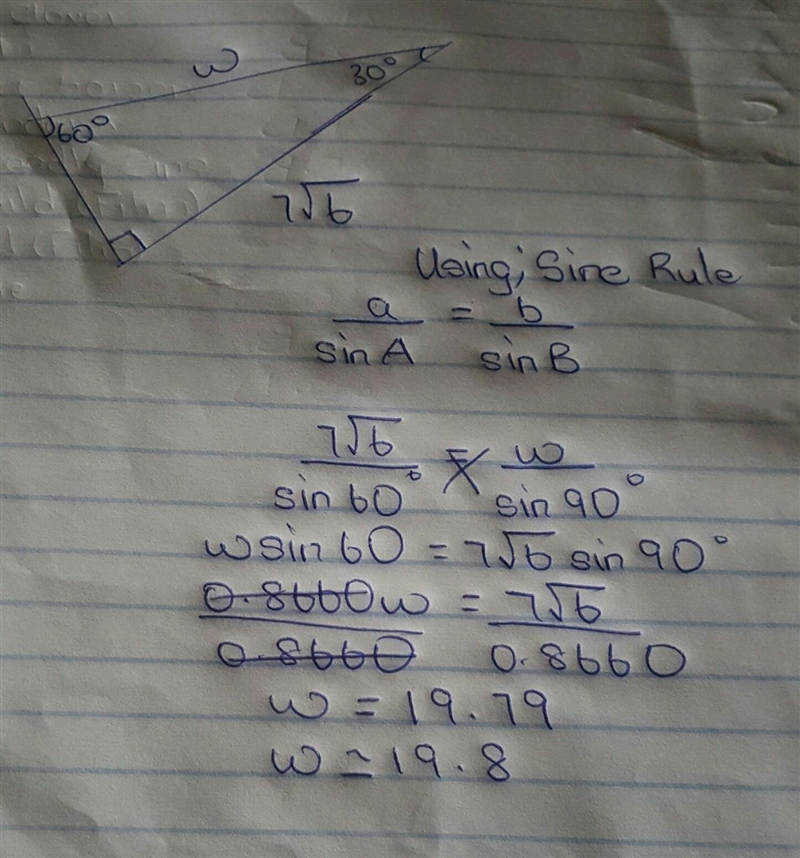 w
30°
60°
7√6
Using; Sine Rule
a/sin A = b/sin B
7√6/sin 60° = w/sin 90°
w sin 60 = 7√6 sin 90°
0.8660w/0.8660 = 7√6/0.8660
w = 19.79
w ≃ 19.8